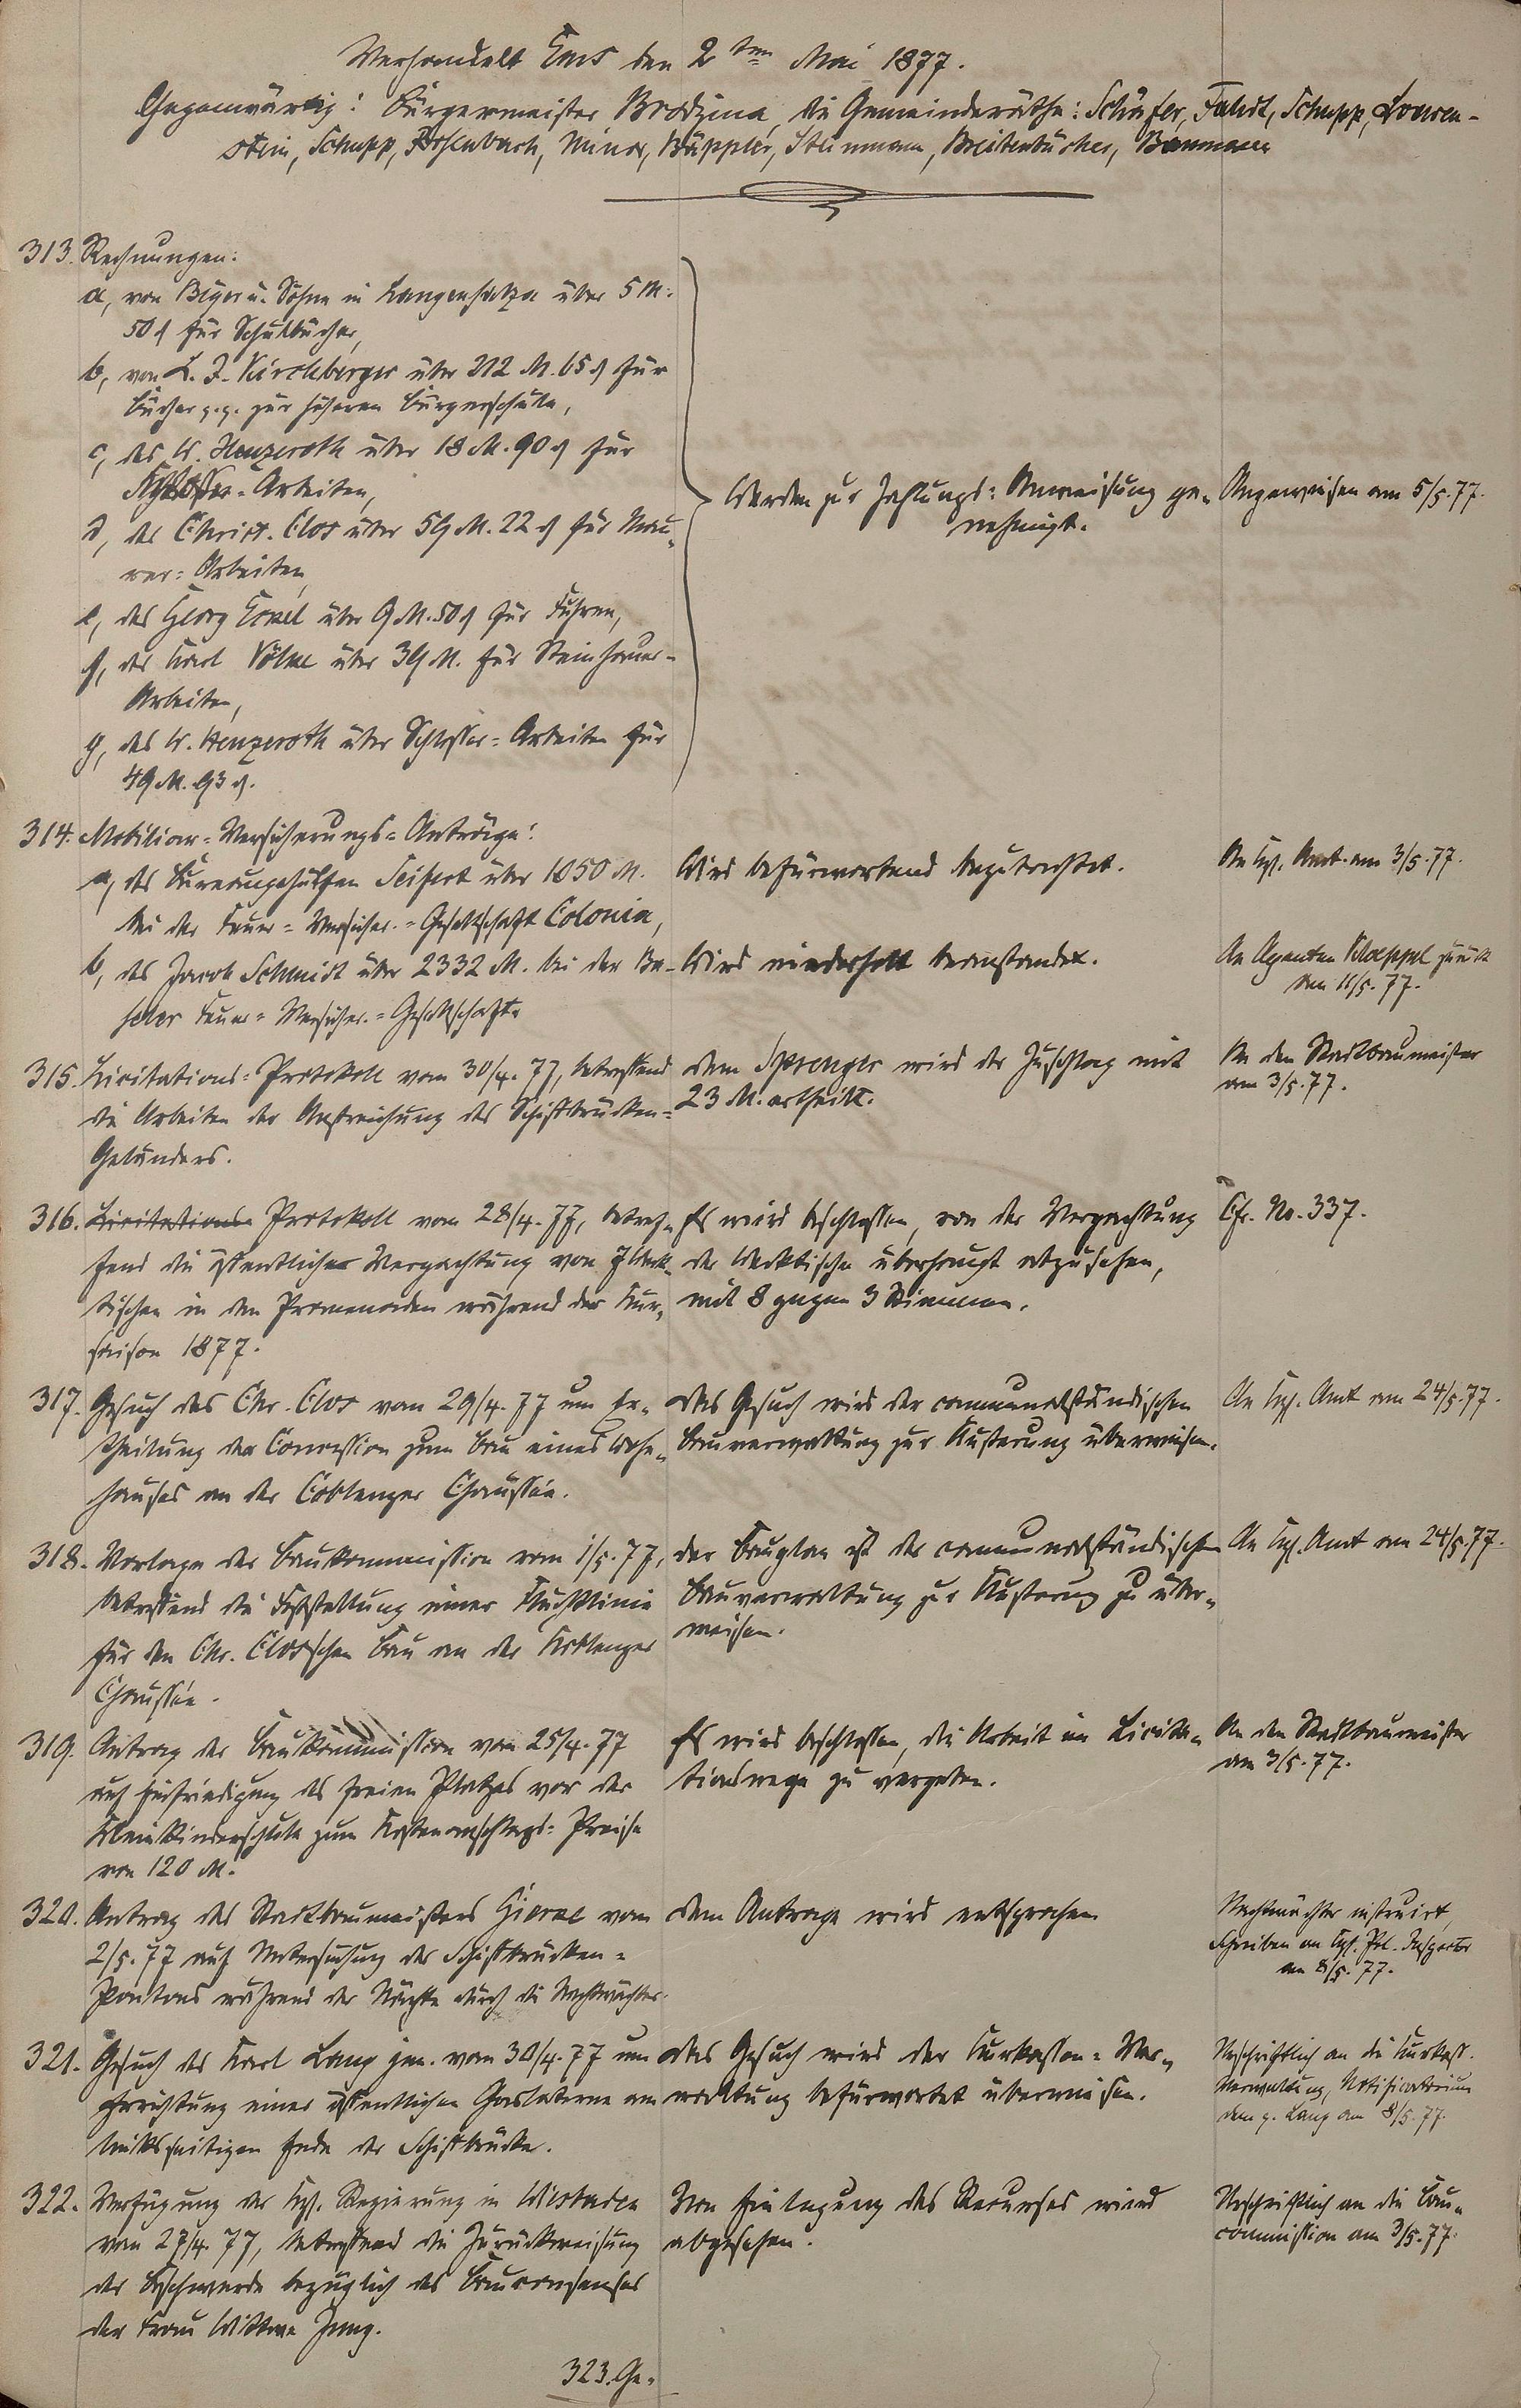 Verhandelt Ems den 2ten Mai 1877.
Gegenwärtig: Bürgermeister Brodzina, die Gemeinderäthe: Schäfer, Fahdt, Schupp, Löwen-
stein, Schupp, Minor, Bäppler, Steinmann, Breitenbücher, Baumann
313. Rechnungen:
a, von Beyer u. Söhne in Langensalza über 5 M.
50 ₰ für Schulbücher,
b, von L. J. Kirchberger über 212 M. 65 ₰ für
Bücher p.p. zur höheren Bürgerschule,
c, des W. Henzeroth über 18 M. 90 ₰ für
Schlosser-Arbeiten,
d, des Christ. Clos über 59 M. 22 ₰ für Mau-
rer-Arbeiten,
e, des Georg über 9 M. 50 ₰ für Fuhren,
f, des Karl über 39 M. für Steinhauer-
Arbeiten,
g, des W. Henzeroth über Schlosser-Arbeiten für
49 M. 93 ₰.
Werden zur Zahlungs-Anweisung ge-
nehmigt.
Angewiesen am 5/5.77.
314. Mobiliar-Versicherungs-Anträge:
a, des Bureaugehülfen Seifert über 1050 M.
bei der Feuer-Versicher.-Gesellschaft Colonia,
Wird befürwortend begutachtet.
An Kgl. Amt am 3/5.77.
b, des Jacob Schmidt über 2332 M. bei der Ba-
seler Feuer-Versicher.-Gesellschaft.
Wird wiederholt beanstandet.
An Agenten Kloeppel zurück
den 11/5.77.
315. Licitations-Protokoll vom 30/4.77, betreffend
die Arbeiten der Anstreichung des Schiffbrücken-
Geländers.
Dem Sprenger wird der Zuschlag mit
23 M. ertheilt.
An den Stadtbaumeister
am 3/5.77.
316. Licitations- Protokoll vom 28/4.77, betref-
fend die öffentliche Verpachtung von Werk-
tischen in den Promenaden während der Kur-
saison 1877.
Es wird beschlossen, von der Verpachtung
der Werktische überhaupt abzusehen,
mit 8 gegen 3 Stimmen.
Cfr. No. 337.
317. Gesuch des Chr. Clos vom 29/4.77 um Er-
theilung der Concession zum Bau eines Wohn-
hauses an der Coblenzer Chaussée.
Das Gesuch wird der communalständischen
Bauverwaltung zur Äußerung überwiesen.
An Kgl. Amt am 24/5.77.
318. Vorlage der Baukommission vom 1/5.77,
betreffend die Feststellung einer Fluchtlinie
für den Chr. Clos'schen Bau an der Koblenzer
Chaussée.
Der Bauplan ist der communalständischen
Bauverwaltung zur Äußerung zu über-
weisen.
An Kgl. Amt am 24/5.77.
319. Antrag der Baukommission vom 25/4.77
auf Einfriedigung des freien Platzes vor der
Kleinkinderschule zum Kostenanschlags-Preise
von 120 M.
Es wird beschlossen, die Arbeit im Licita-
tionswege zu vergeben.
An den Stadtbaumeister
am 3/5.77.
320. Antrag des Stadtbaumeisters vom
2/5.77 auf Untersuchung der Schiffbrücken-
Pontons während der Nächte durch die Nachtwächter.
Dem Antrage wird entsprochen
Nachtwächter instruirt,
Schreiben an Kgl. Pol. Inspector
am 8/5.77.
321. Gesuch des Karl Lang jun. vom 30/4.77 um
Errichtung einer öffentlichen Gaslaterne am
linksseitigen Ende der Schiffbrücke.
Das Gesuch wird der Kurkassen-Ver-
waltung befürwortet überwiesen.
Urschriftlich an die Kurkass.
Verwaltung, Notificatorium
dem p. Lang am 8/5.77.
322. Verfügung der Kgl. Regierung in Wiesbaden
vom 27/4.77, betreffend die Zurückweisung
der Beschwerde bezüglich des Bauconsenses
der Frau Wittwe Jung.
Von Einlegung des Recurses wird
abgesehen.
Urschriftlich an die Bau-
commission am 3/5.77.
323. Ge-